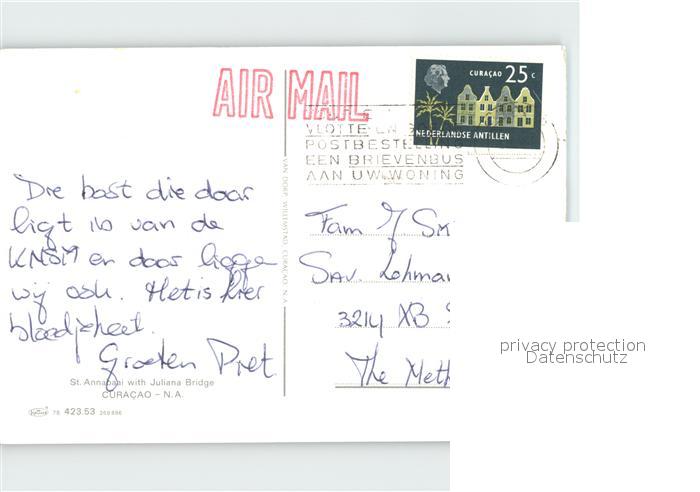 AIR MAIL
CURAÇAO 25 c
NEDERLANDSE ANTILLEN
VLOTTE EN
POSTBESTELLING
EEN BRIEVENBUS
AAN UW WONING
Die boot die daar
ligt is van de
KNSM en daar liggen
wij ook. Het is hier
bloedjeheet.
Groeten Piet
Fam J Sm
Sav. Lohman
3214 XB
The Neth
VAN DORP, WILLEMSTAD, CURAÇAO, N.A.
St. Annabaai with Juliana Bridge
CURAÇAO - N.A.
78 423.53 269896
privacy protection
Datenschutz